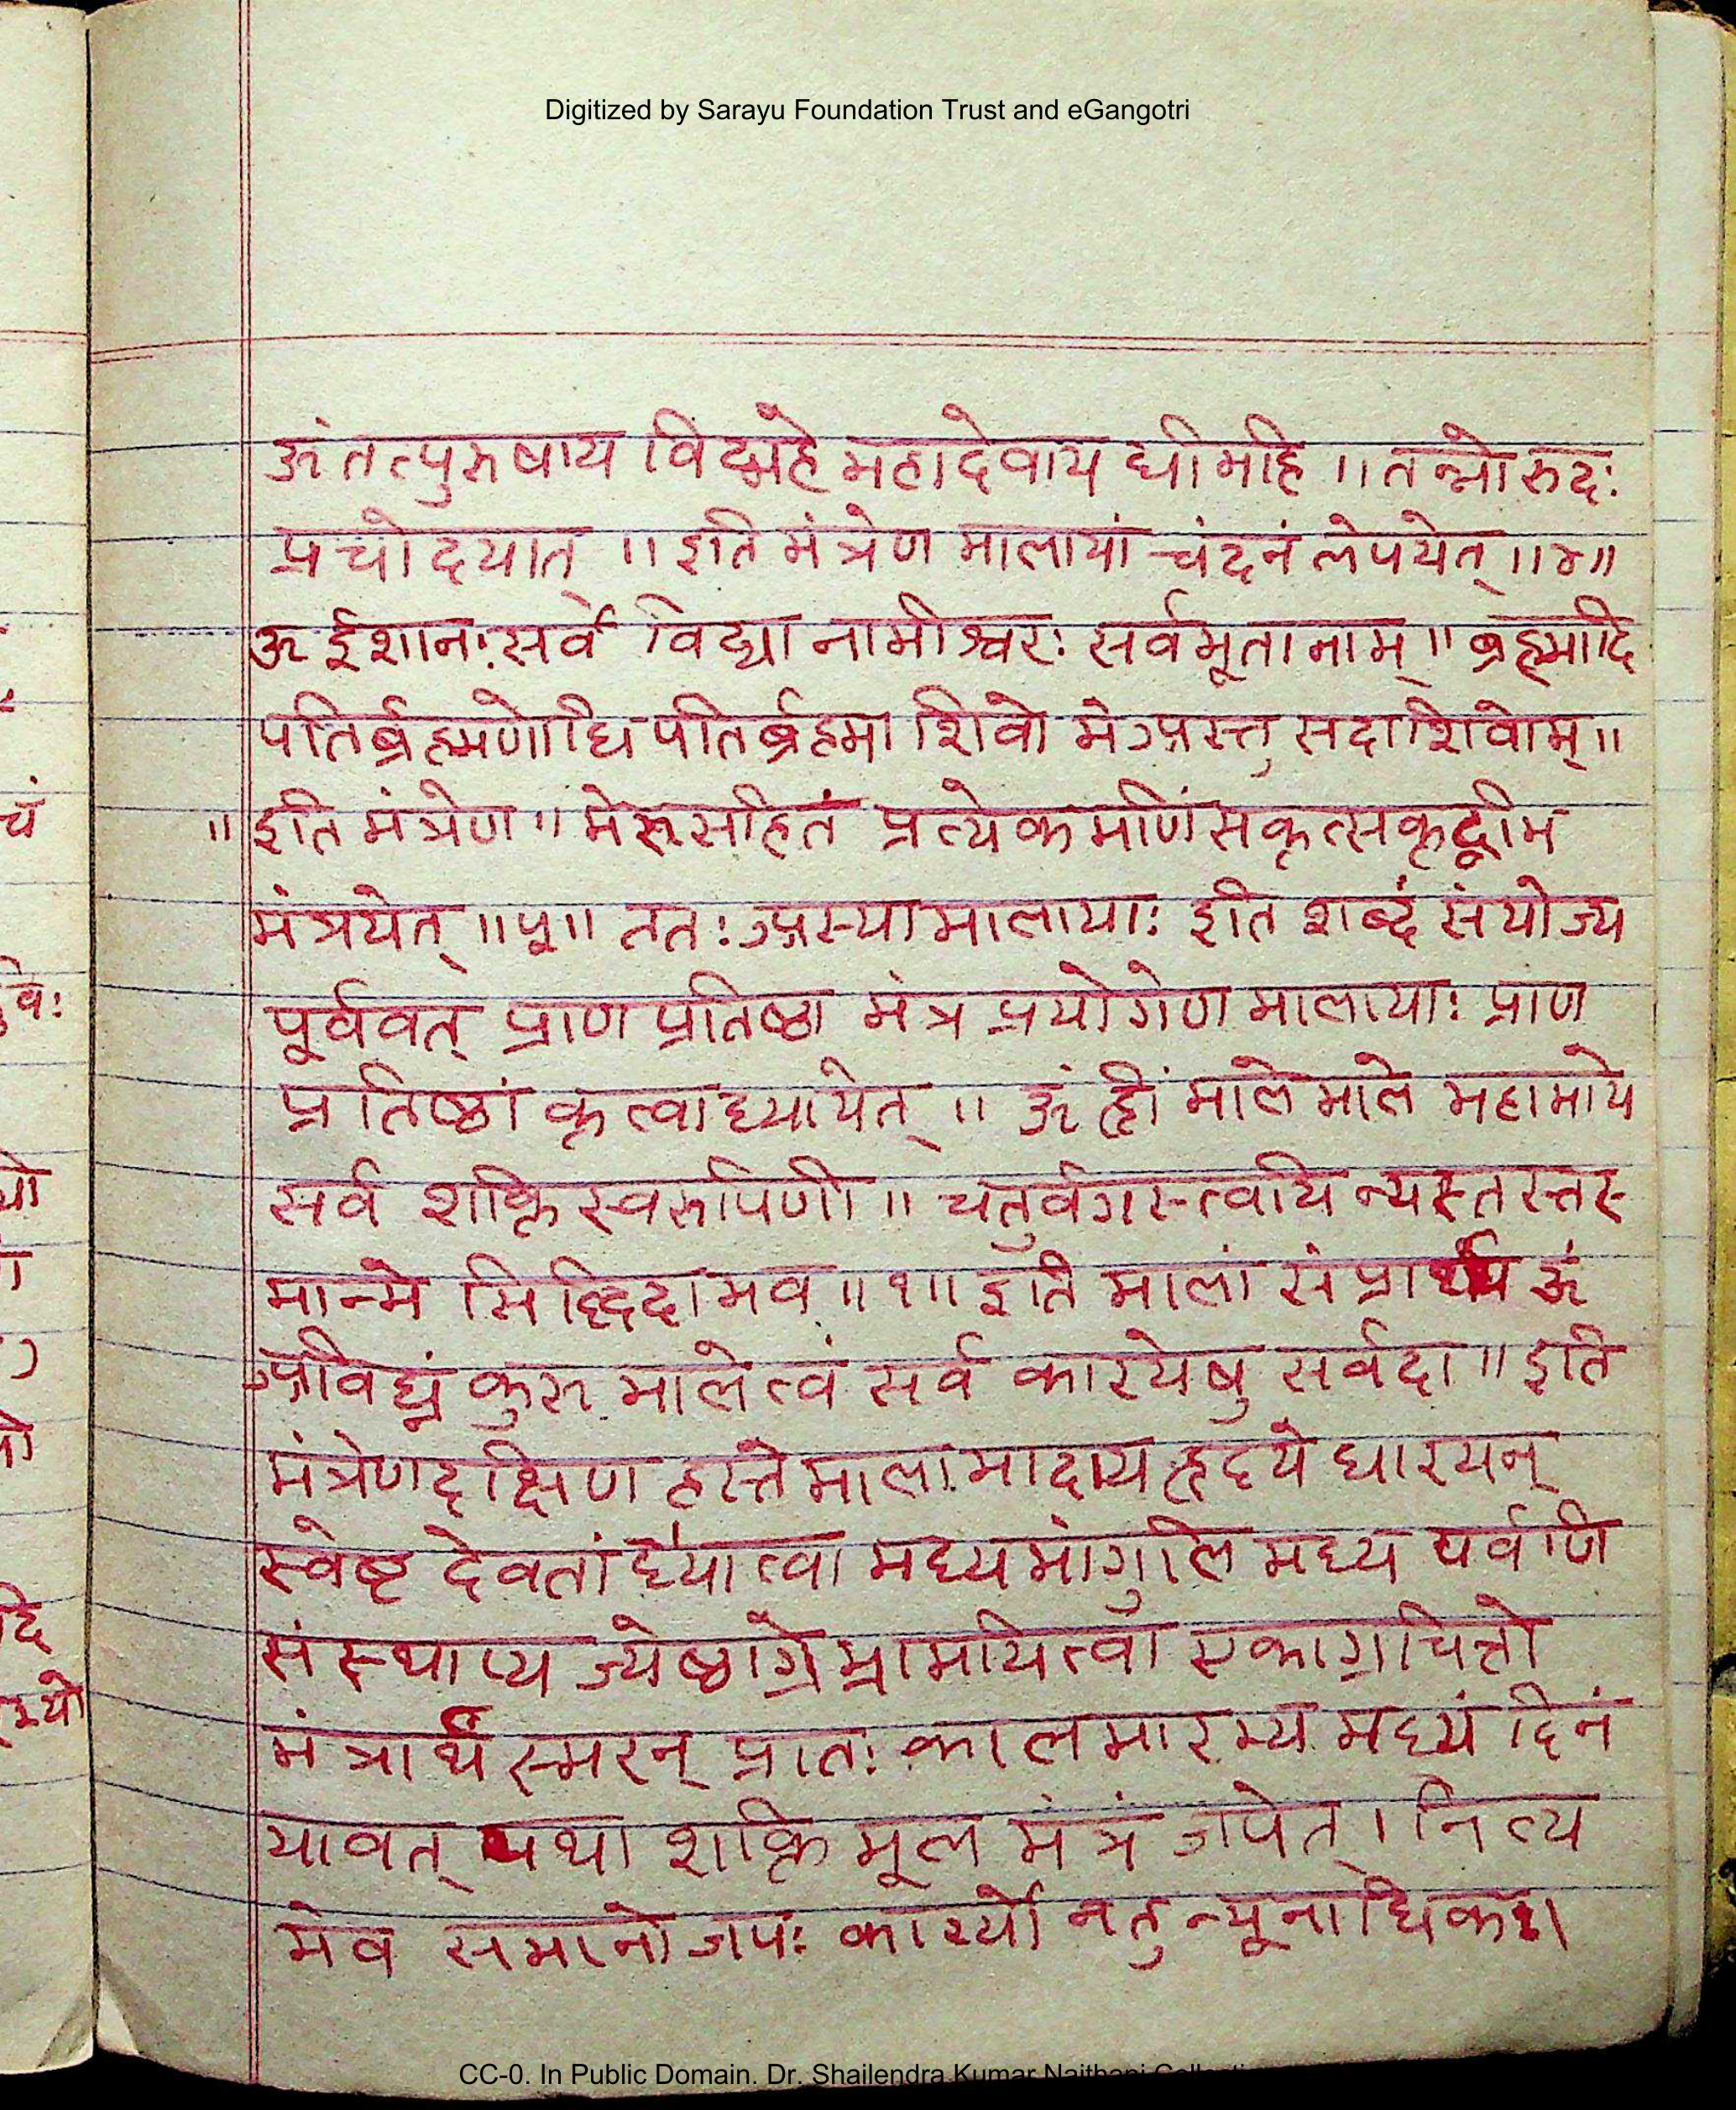 Digitized by Sarayu Foundation Trust and eGangotri
ॐ तत्पुरुषाय विद्महे महादेवाय धीमहि ॥ तन्नो रुद्रः
प्रचोदयात् ॥ इति मंत्रेण मालायां चंदनं लेपयेत् ॥४॥
ॐ ईशानः सर्व विद्यानामीश्वरः सर्वभूतानाम् ॥ ब्रह्मादि
पतिर्ब्रह्मणोधिपतिर्ब्रह्मा शिवो मे अस्तु सदाशिवोम् ॥
॥ इति मंत्रेण ॥ मेरुसहितं प्रत्येक मणिं सकृत्सकृद्भिम
मंत्रयेत् ॥५॥ ततः अस्या मालायाः इति शब्दं संयोज्य
पूर्ववत् प्राण प्रतिष्ठा मंत्र प्रयोगेण मालायाः प्राण
प्रतिष्ठां कृत्वा ध्यायेत् ॥ ॐ ह्रीं माले माले महामाये
सर्व शक्ति स्वरूपिणी ॥ चतुर्वगस्त्वयि न्यस्तस्तस्
मान्मे सिद्धिदा भव ॥१॥ इति मालां संप्रार्थ्य ॐ
अविघ्नं कुरु माले त्वं सर्व कारयेषु सर्वदा ॥ इति
मंत्रेण दक्षिण हस्ते मालामादाय हृदये धारयन्
स्वेष्ट देवतां ध्यात्वा मध्यमांगुलि मध्य पर्वणि
संस्थाप्य ज्येष्ठाग्रे भ्रामयित्वा एकाग्रचित्तो
मंत्रार्थं स्मरन् प्रातः कालमारभ्य मध्यं दिनं
यावत् यथा शक्ति मूल मंत्रं जपेत् । नित्य
मेव समानो जपः कार्यो न तु न्यूनाधिकः।
चं
वः
यो
द्दि
CC-0. In Public Domain. Dr. Shailendra Kumar Naithani